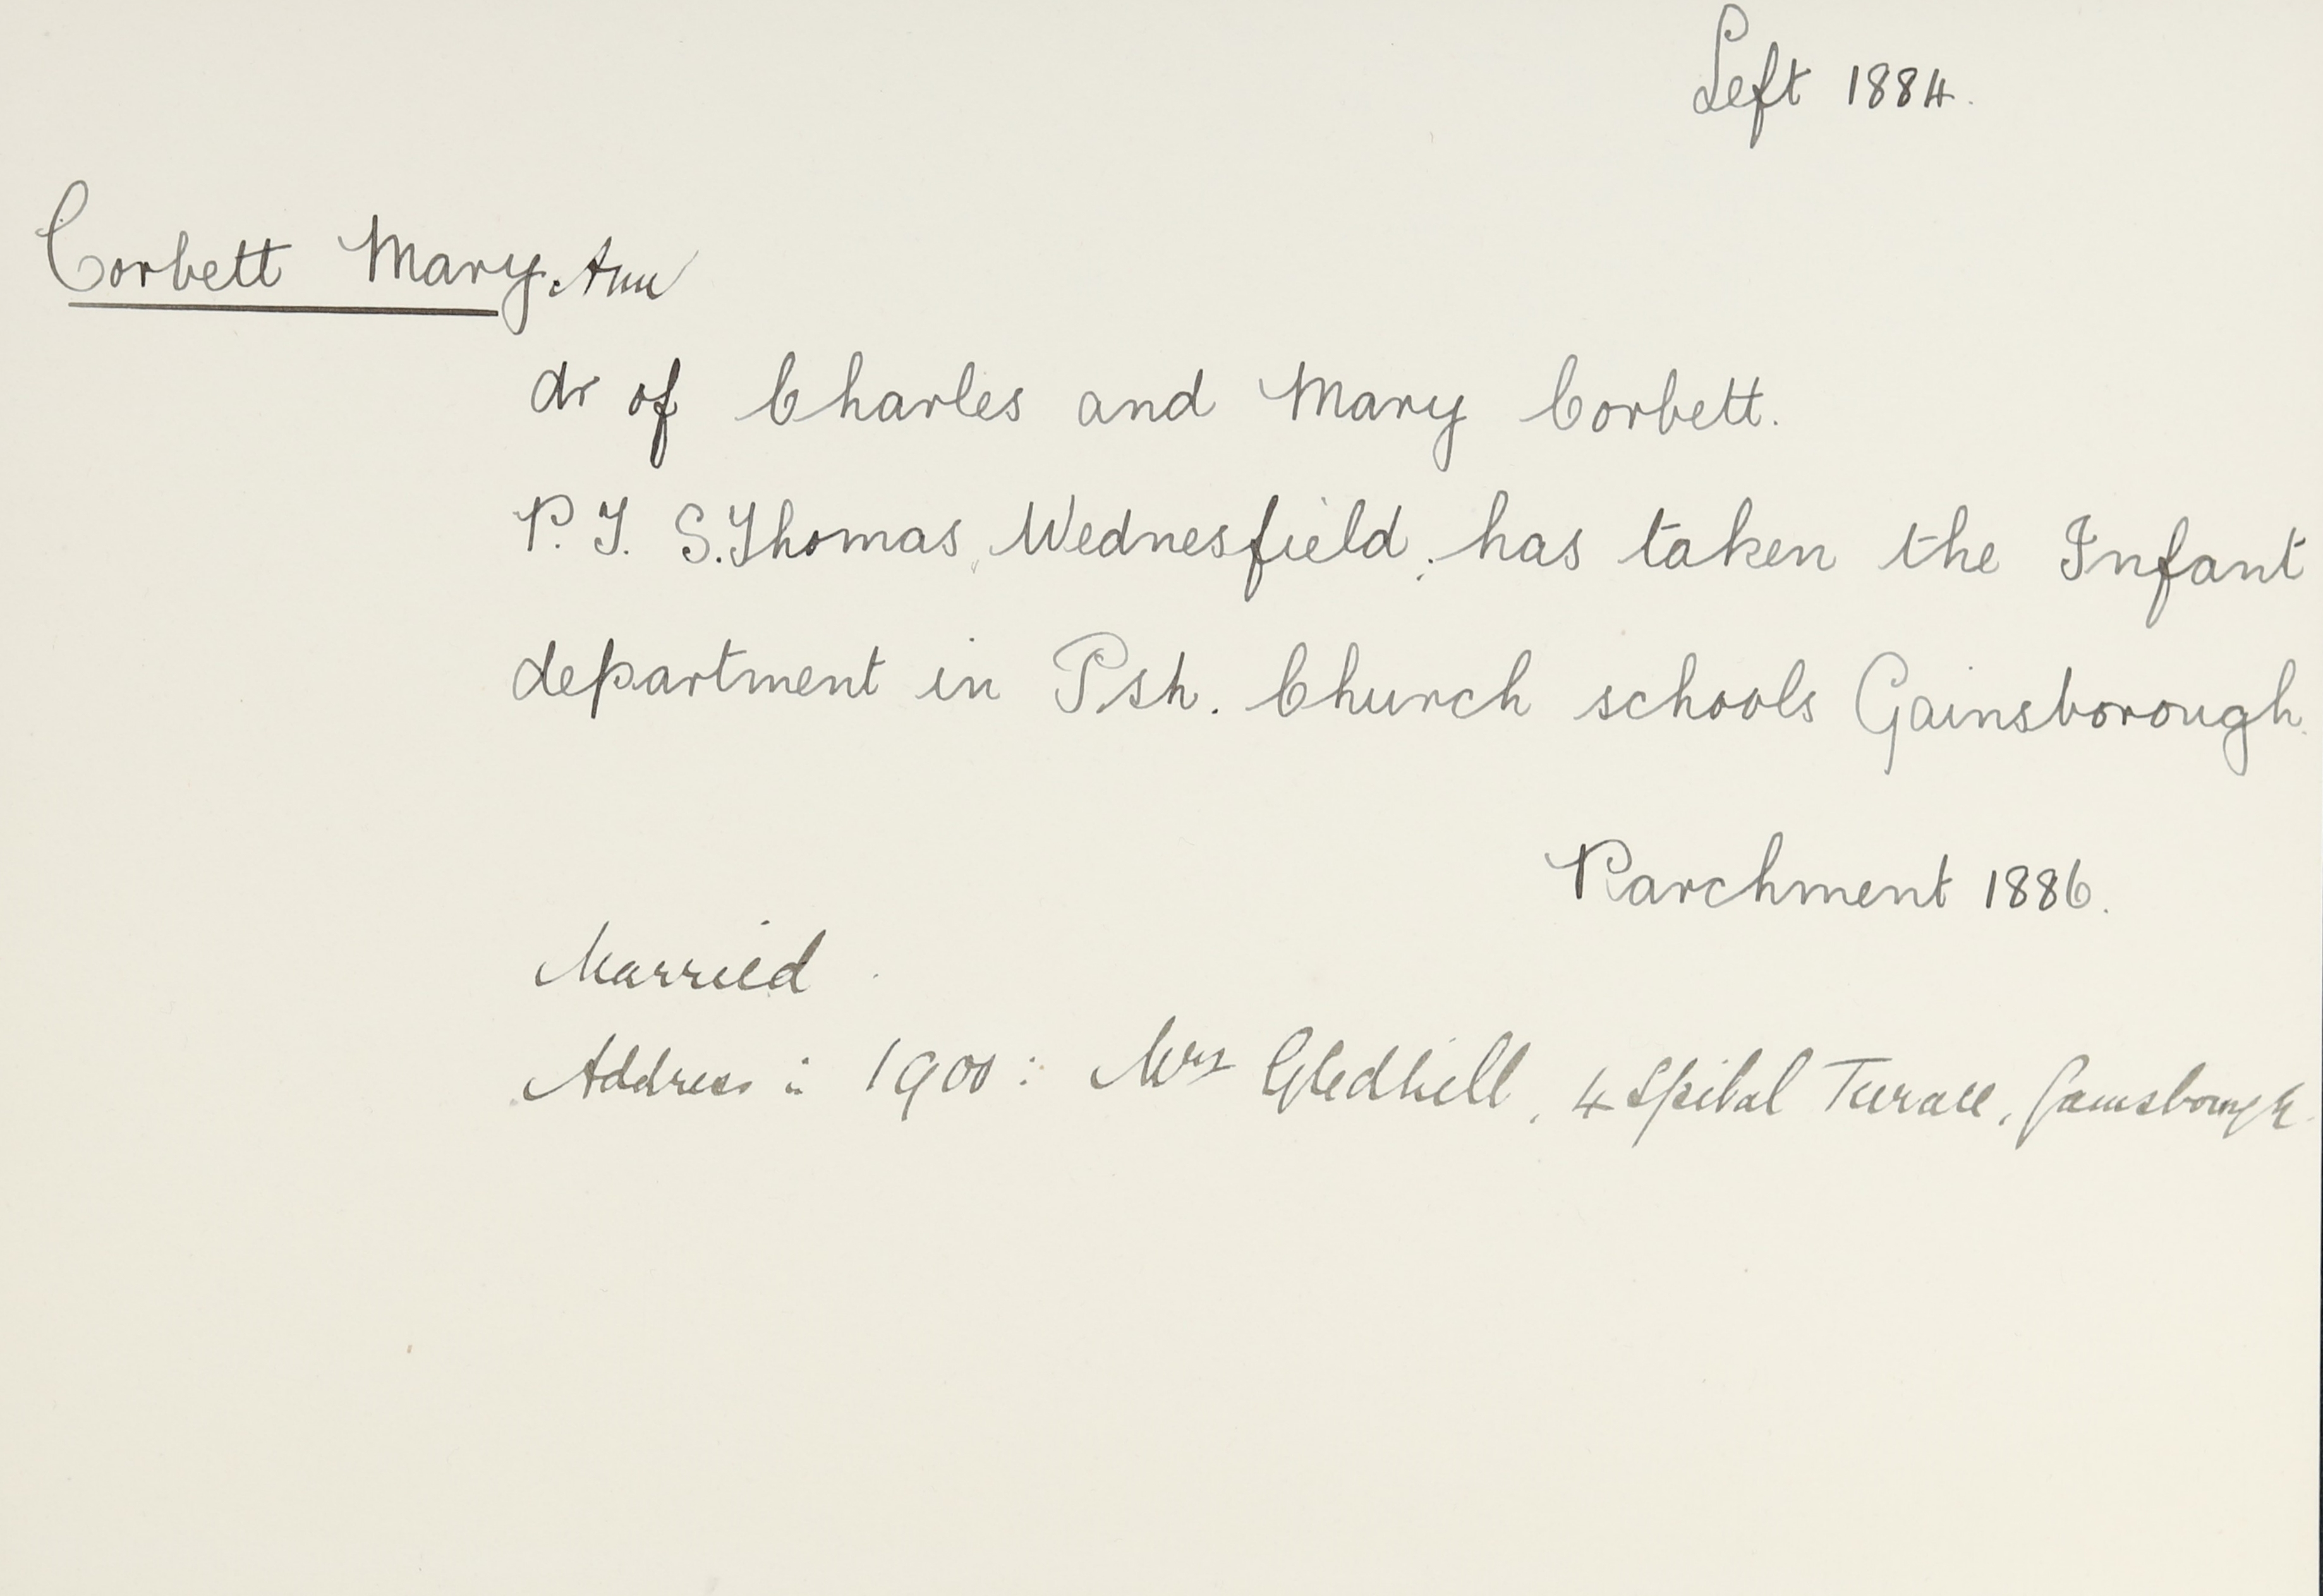 Left 1884.
Corbett Mary. Ann
dr of Charles and Mary Corbett.
P.T. S.Thomas, Wednesfield, has taken the Infant
department in Psh. Church schools Gainsborough.
Parchment 1886.
Married
Address : 1900 : Mrs Gledhill, 4 Spital Terrace, Gainsborough.